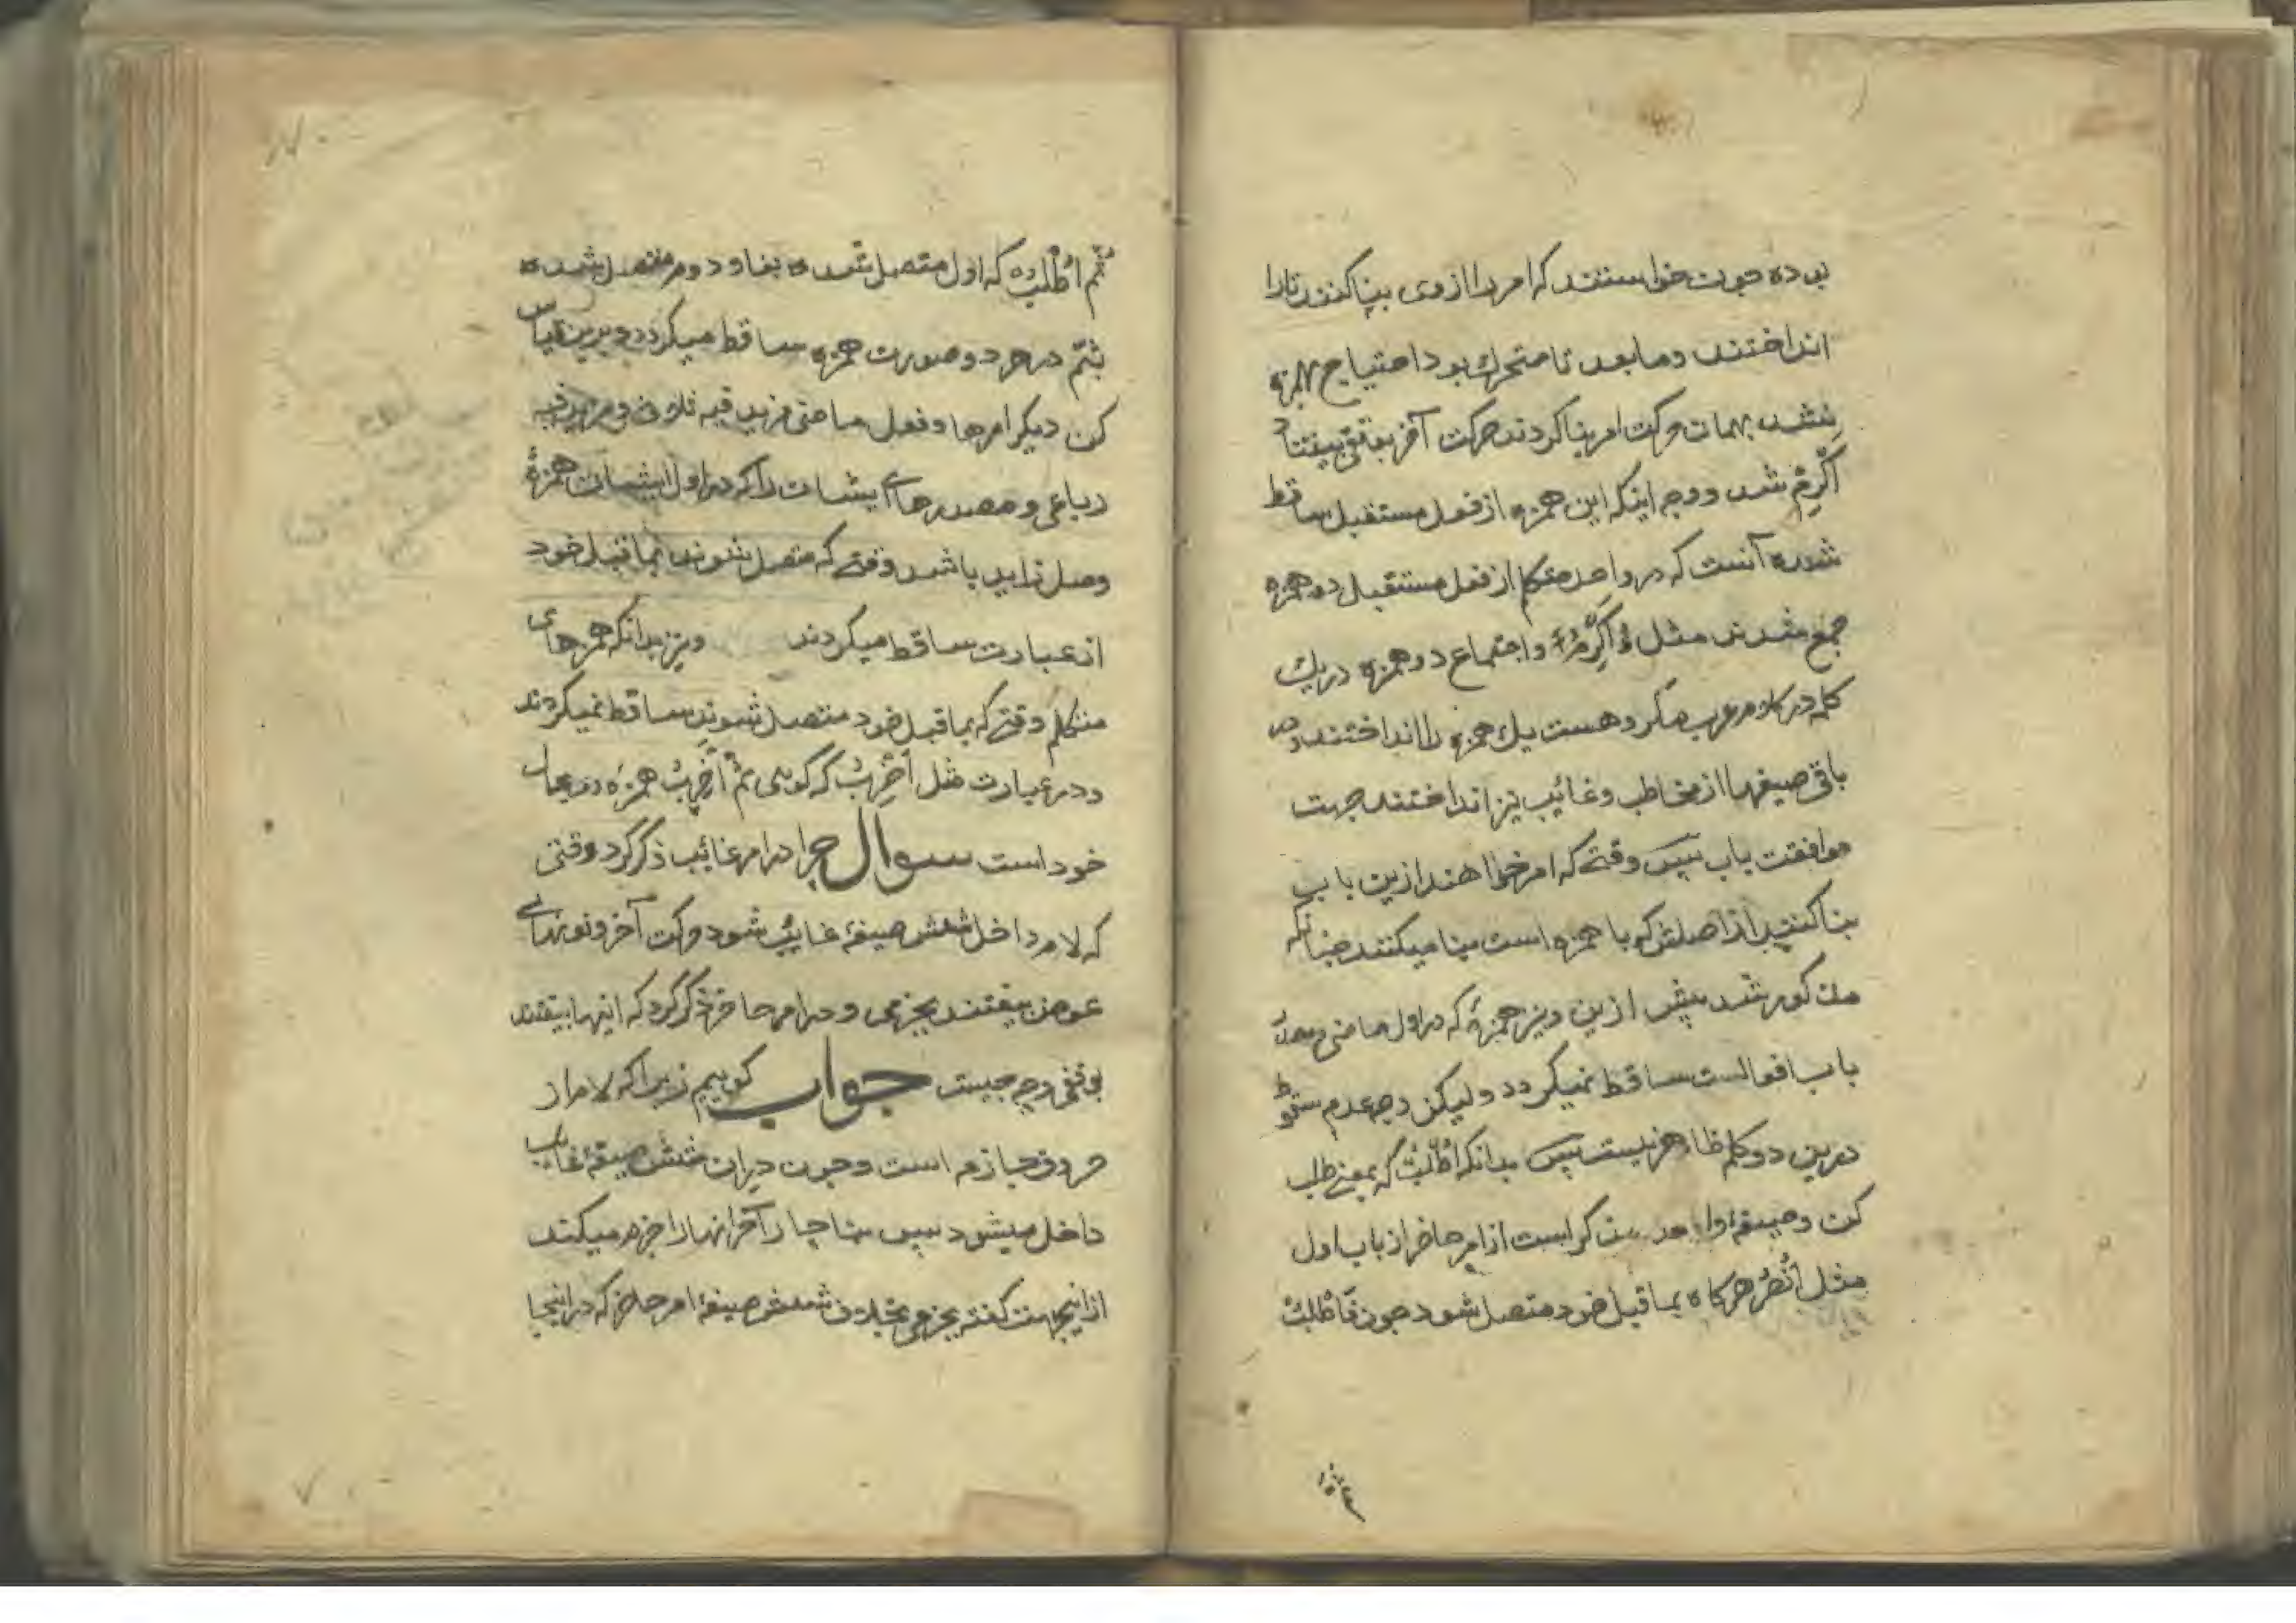 بوده چون خواستند که امر را از وی بنا کنند تا را
انداختند و مابعد تا متحرک بود احتیاج بهمزه
نشد بهمان حرکت امر بنا کردند حرکت آخر بوقفی بیفتاد
اَکْرِمْ شد و وجه اینکه این همزه از فعل مستقبل ساقط
شده آنست که در واحد متکلم از فعل مستقبل دو همزه
جمع شدند مثل ءُاَکْرِمُ و اجتماع دو همزه در یک
کلمه در کلام عرب مکروهست یک همزه را انداختند و در
باقی صیغها از مخاطب و غائب نیز انداختند جهت
موافقت باب پس وقتے که امر خواهند ازین باب
بنا کنند از اصلش که با همزه است بنا میکنند چنانکه
مذکور شد پیش ازین و نیز همزهٔ که در اول ماضی و مصدر
باب افعالست ساقط نمیگردد و لیکن وجه عدم سقوط
درین دو کلمه ظاهر نیست پس بدانکه اُطْلُبْ که بمعنے طلب
کن و صیغهٔ واحد مذکر است از امر حاضر از باب اول
مثل اُنْصُرْ هرگاه بماقبل خود متصل شود چون فَاطْلُبْ
ثم اطْلُبْ که اول متصل شده بفا و دوم متصل شده
بثم در هر دو صورت همزه ساقط میگردد و برین قیاس
کن دیگر امرها و فعل ماضی مزید فیه ثلاثی و مزید فیه
رباعی و مصدرهاے ایشان را که در اول ایشان همزهٔ
وصل زاید باشد وقتے که متصل شوند بماقبل خود
از عبارت ساقط میگردند ونیز بدانکه همزهای
متکلم وقتے که بماقبل خود متصل شوند ساقط نمیگردند
در عبارت مثل اَضْرِبُ که گویی ثم اَضْرِبُ همزه بحال
خود است سوال چرا در امر غائب ذکر کرد وقتی
که لام داخل شش صیغهٔ غایب شود حرکت آخر و نونهاے
عوض بیفتند بجزمی و در امر حاضر ذکر کرد که اینها بیفتند
بوقفی وجه چیست جواب گوییم زیرا که لام از
حروف جازمه است و چون در آن شش صیغهٔ غایب
داخل میشود پس ناچار آخر انها را جزم میکند
از اینجهت گفته بجزمی بخلاف شش صیغهٔ امر حاضر که در اینجا